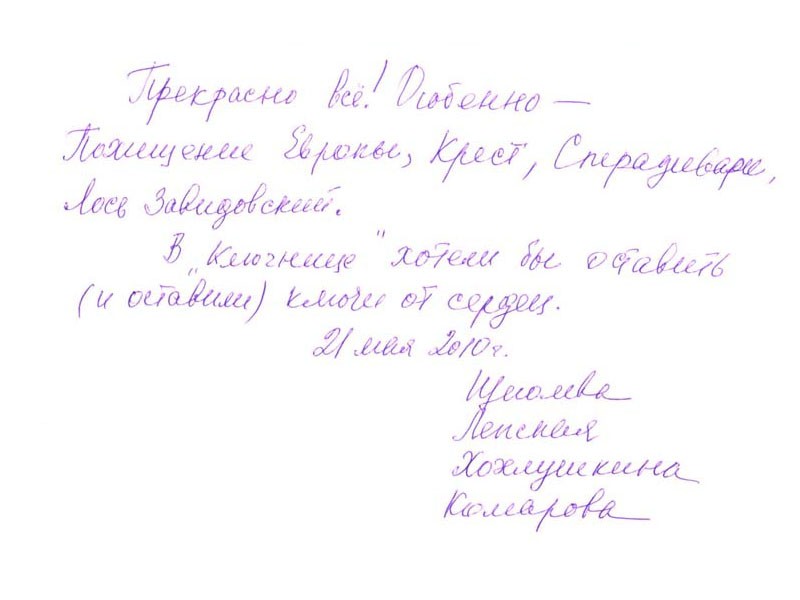 Прекрасно всё! Особенно —
Похищение Европы, Крест, Страдивари,
Лось Завидовский.
В „Ключнице" хотели бы оставить
(и оставили) ключи от сердец.
21 мая 2010г.
Лепская
Хохлушкина
Комарова